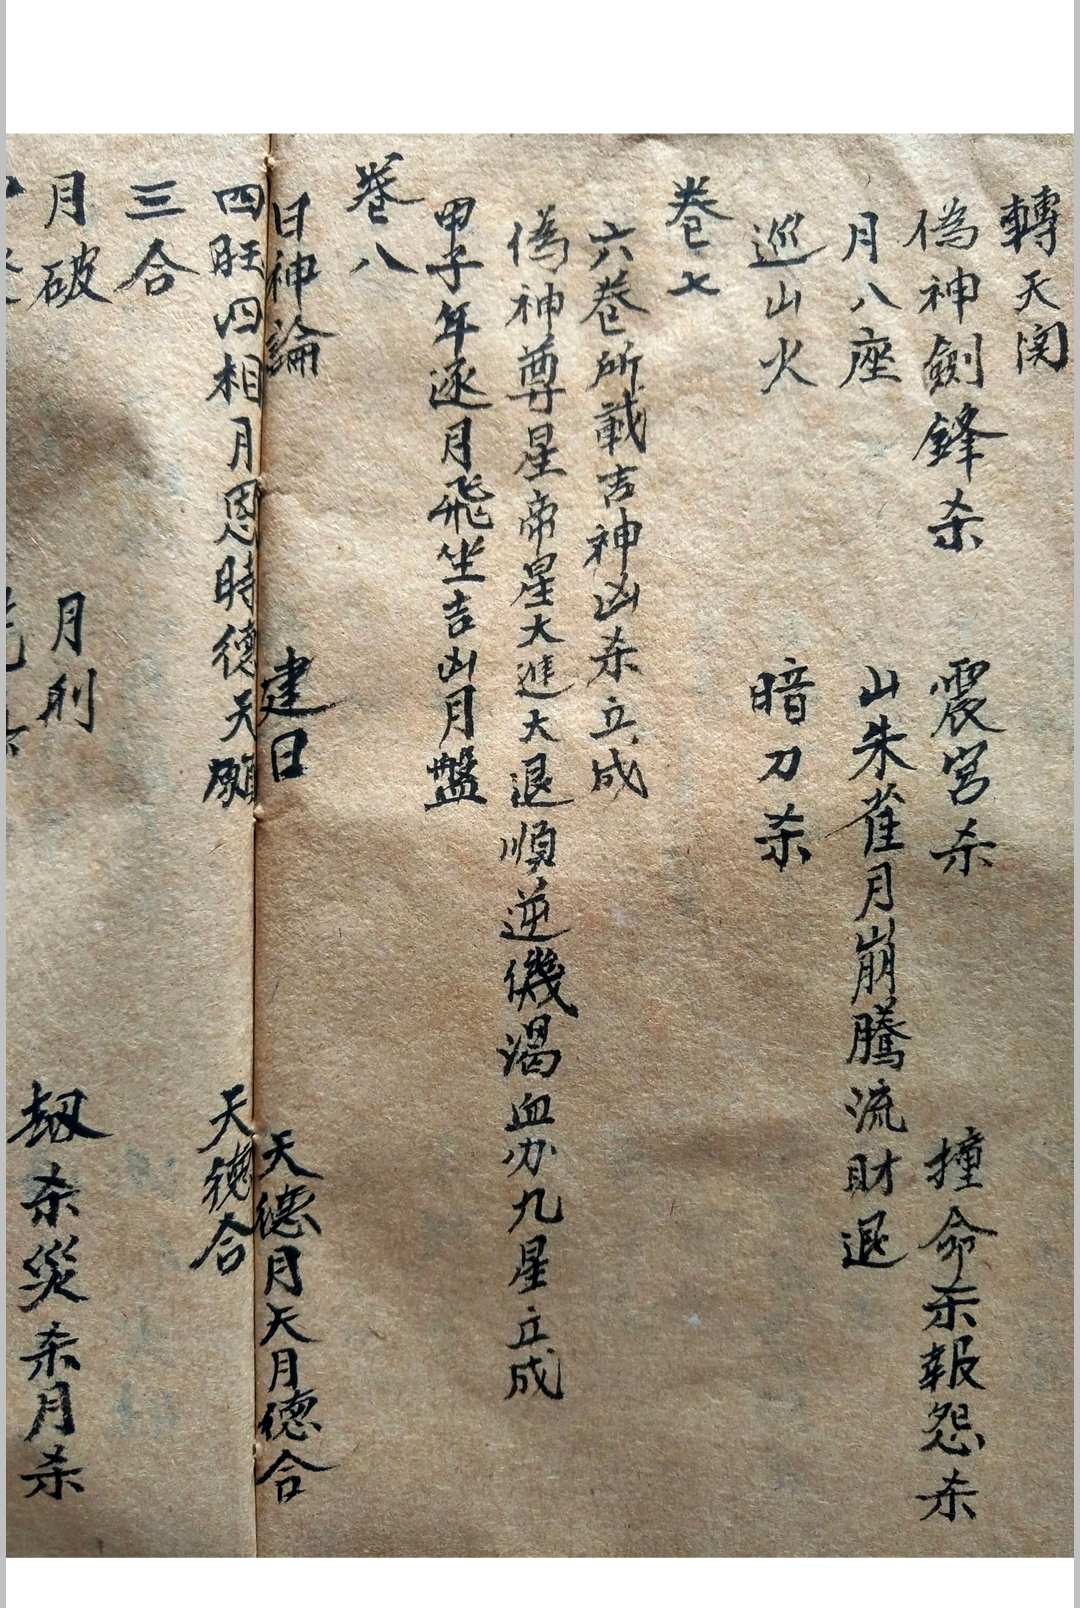 轉天関
偽神劍鋒杀 震宮杀 撞命杀報怨杀
月八座 山朱雀月崩騰流財退
巡山火 暗刀杀
卷七
六卷所載吉神凶杀立成
偽神尊星帝星大進大退順逆機渴血刃九星立成
甲子年逐月飛坐吉凶月盤
卷八
日神論 建日 天德月天月德合
四旺四相月恩時德天願 天德合
三合
月破 月刑 劫杀災杀月杀